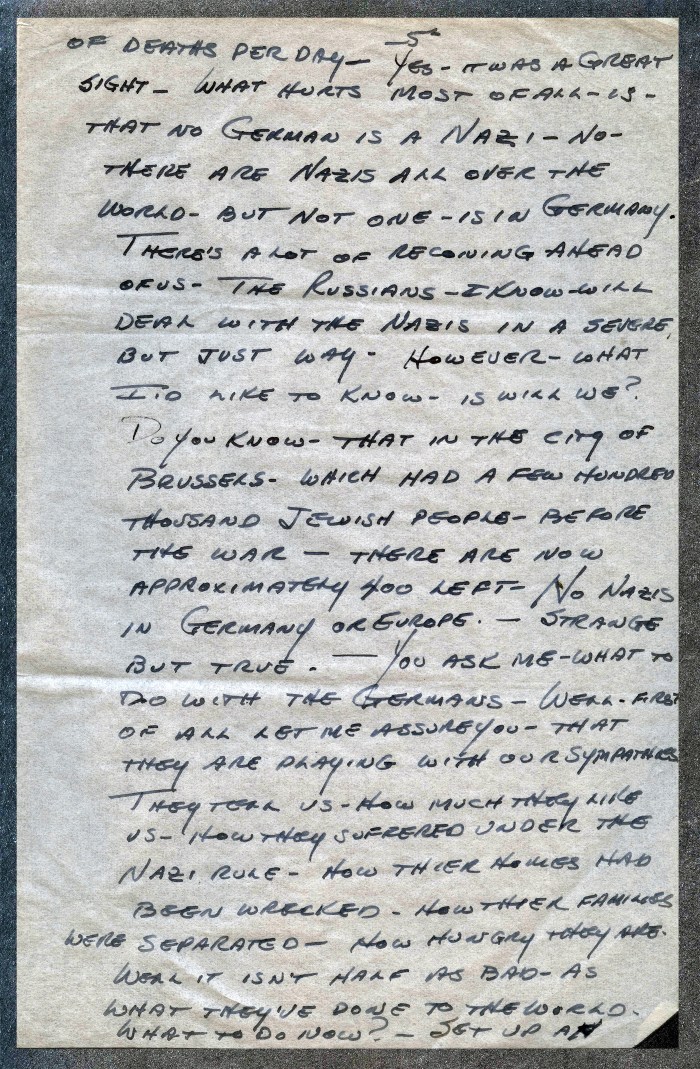 -5-
OF DEATHS PER DAY- YES- IT WAS A GREAT
SIGHT- WHAT HURTS MOST OF ALL-IS-
THAT NO GERMAN IS A NAZI- NO-
THERE ARE NAZIS ALL OVER THE
WORLD- BUT NOT ONE-IS IN GERMANY.
THERE'S A LOT OF RECONING AHEAD
OF US- THE RUSSIANS-I KNOW-WILL
DEAL WITH THE NAZIS IN A SEVERE,
BUT JUST WAY- HOWEVER- WHAT
I'D LIKE TO KNOW- IS WILL WE?
DO YOU KNOW- THAT IN THE CITY OF
BRUSSELS- WHICH HAD A FEW HUNDRED
THOUSAND JEWISH PEOPLE- BEFORE
THE WAR - THERE ARE NOW
APPROXIMATELY 400 LEFT- NO NAZIS
IN GERMANY OR EUROPE. - STRANGE
BUT TRUE. - YOU ASK ME-WHAT TO
DO WITH THE GERMANS- WELL-FIRST
OF ALL LET ME ASSURE YOU- THAT
THEY ARE PLAYING WITH OUR SYMPATHIES
THEY TELL US-HOW MUCH THEY LIKE
US- HOW THEY SUFFERED UNDER THE
NAZI RULE- HOW THIER HOMES HAD
BEEN WRECKED- HOW THIER FAMILIES
WERE SEPARATED- HOW HUNGRY THEY ARE.
WELL IT ISN'T HALF AS BAD-AS
WHAT THEY'VE DONE TO THE WORLD.
WHAT TO DO NOW?- SET UP AN